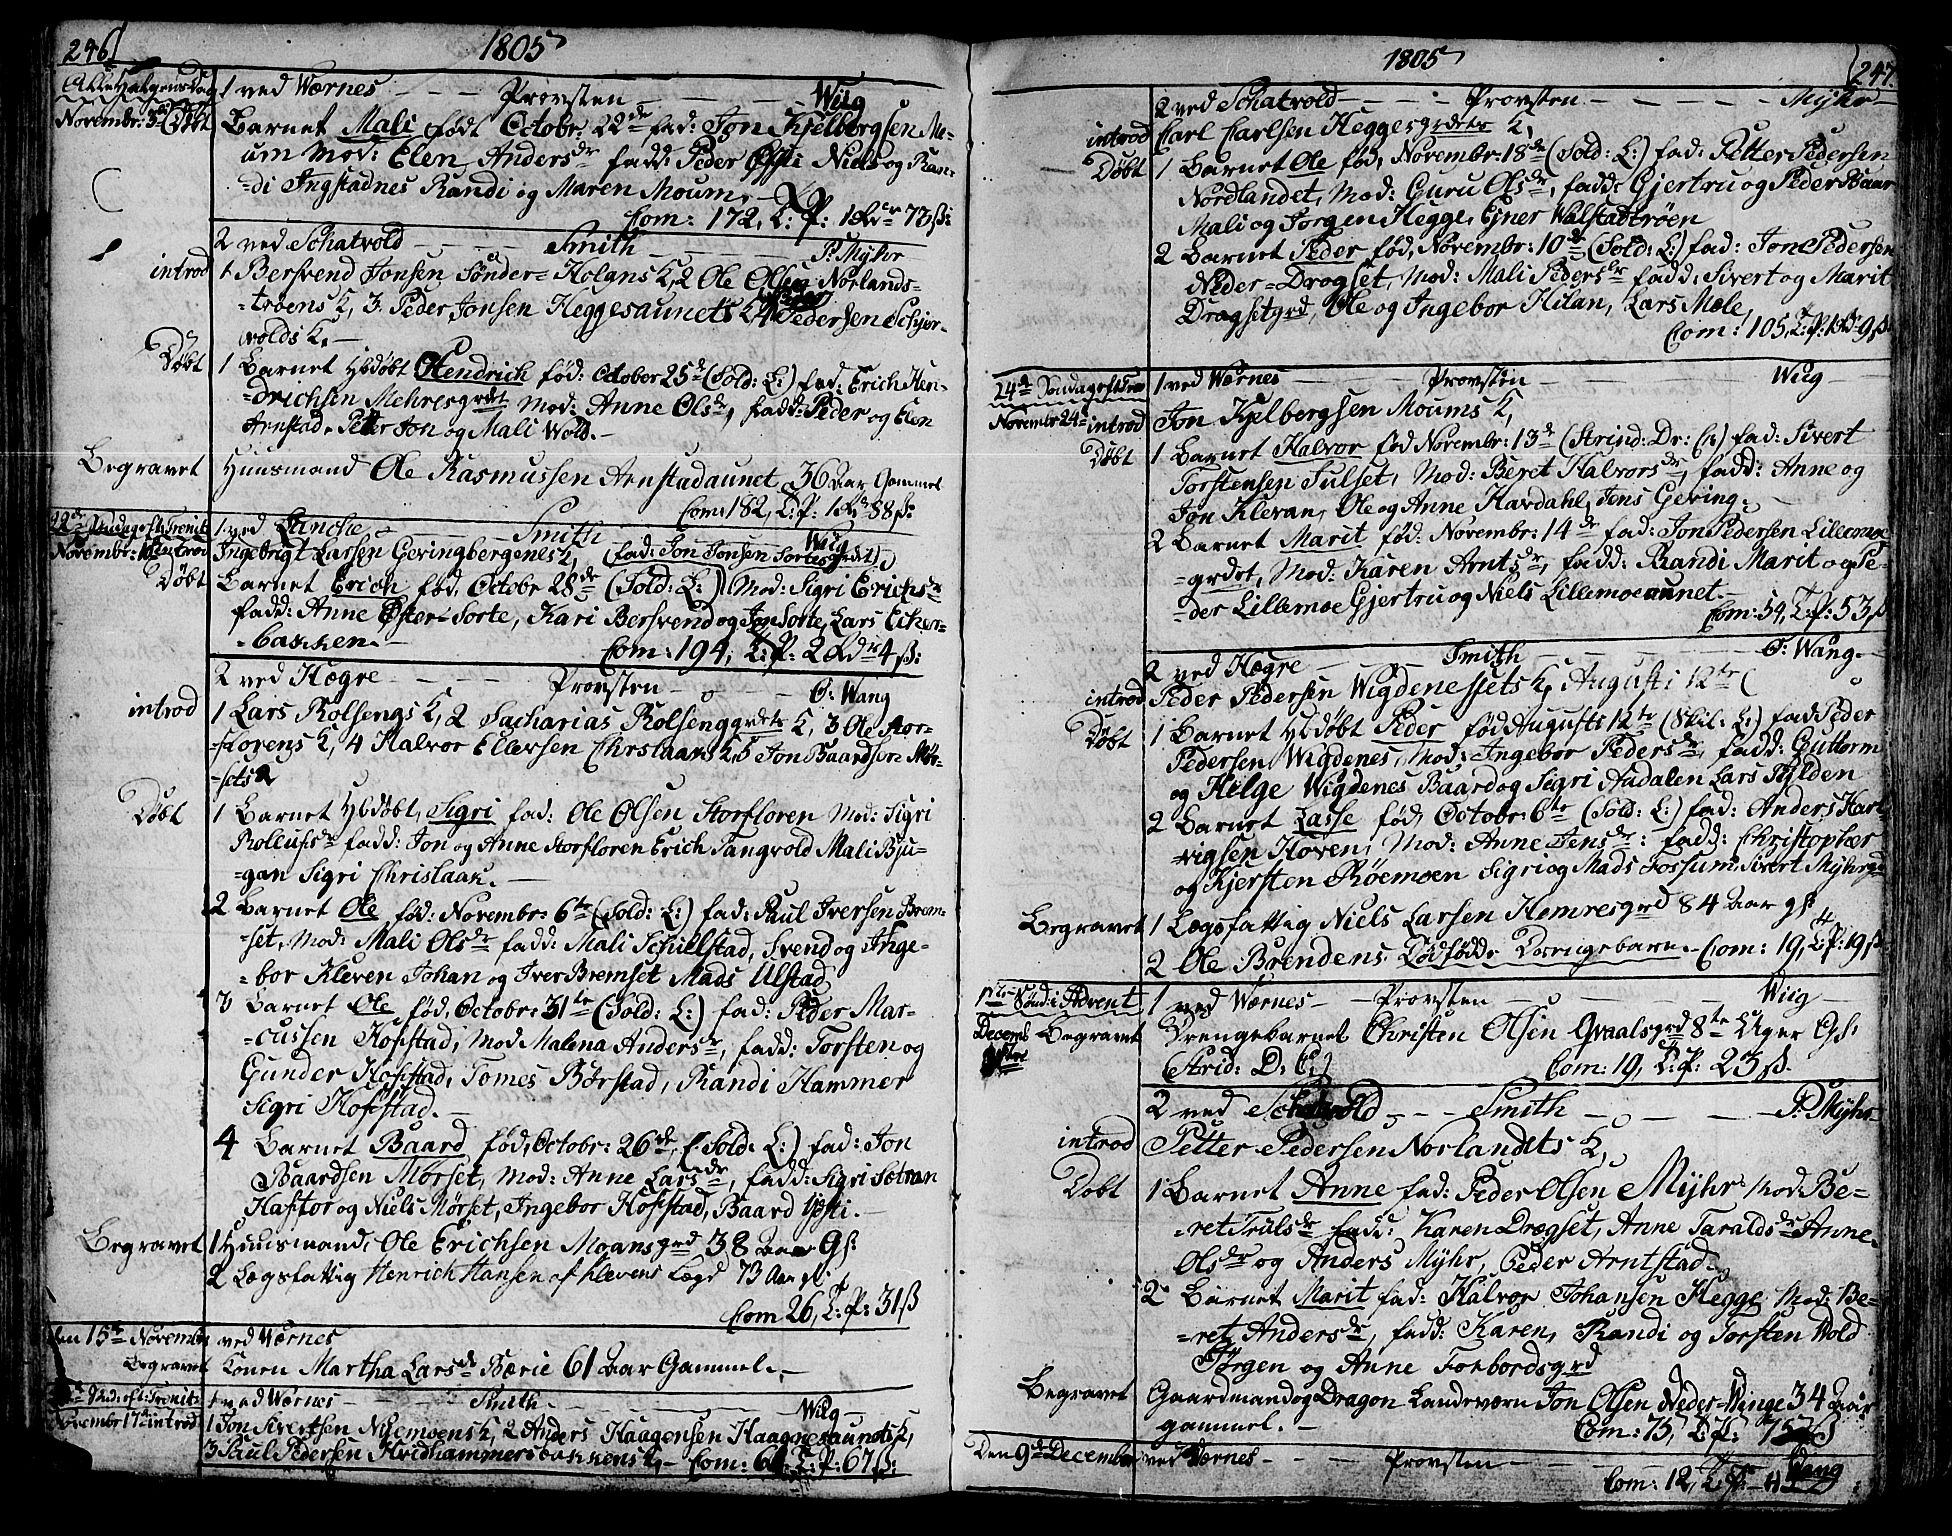 246
1805
AlleHelgensdag 1 ved Wærnes - - - Provsten - - - Wiig
Novembr: 3die Døbt Barnet Mali født Octobr: 22de fad: Jon Kjelbergsen Mo-
um Mod: Elen Andersdr fadd: Peder Øfsti Niels og Ran-
=di Ingstadnes Randi og Maren Moum, -
Com: 172, T: P: 1 Rdr 73 ß:
2 ved Schatvold - - - Smith - - - P: Myhr
introd 1 Bersvend Jonsen Sønder=Holans K, 2 Ole Olsen Norlands-
=troens K, 3 Peder Jonsen Heggesaunets K, 4 Pedersen Schjer-
volds K. -
Døbt 1 Barnet Hdøbt Hendrich fød: October 25de (Sold: L:) fad: Erich Hen-
=drichsen Mehresgrdet Mod: Anne Olsdr, fadd: Peder og Elen
Arnstad, Peter Jon og Mali Wold. -
Begravet Huusmand Ole Rasmussen Arnstadaunet 36 Aar Gammel
Com: 182, T: P: 1 Rdr 88 ß:
22de Søndag eft: Trenit: 1 ved Lancke - Smith - - Wiig
Novembr: 10de introd Ingebrigt Larsen Geringbergenes K, (fad: Jon Jonsen Sortesgrdet)
Døbt Barnet Erich fød, Octobr 28de (Sold: L:) (Mod: Sigri Erichsdr
fadd: Anne Øster-Sorte, Kari Bersvend og Jon Sorte, Lars Eicher-
-backen. - Com: 194, T: P: 2 Rdr 4 ß:
2 ved Hegre - Provsten - - - O: Wang
introd 1 Lars Rolsengs K, 2 Sacharias Rolsenggrdets K, 3 Ole Stor-
-florens K, 4 Halvor Ellersen Christaans K, 5 Jon Baardsen Mør-
-sets K
Døbt 1 Barnet Hdøbt, Sigri fad: Ole Olsen Storfloren Mod: Sigri
Rollufsdr fadd: Jon og Anne Storfloren Erich Tangvold Mali Bju-
-gan Sigri Christaan. -
2 Barnet Ole fød: Novembr: 6te (Sold: L:) fad: Paul Iversen Brem-
-set, Mod: Mali Olsdr fadd: Mali Schillstad, Svend og Inge-
=bor Kleven Johan og Iver Bremset Mads Ulstad
3 Barnet Ole fød, Octobr: 31te (Sold: L:) fad: Peder Mar-
-cussen Hofstad, Mod Malena Andersdr, fadd: Torsten og
Gunder Hofstad, Tomes Børstad, Randi Hammer
Sigri Hofstad. -
4 Barnet Baard fød, Octobr: 26de (Sold: L:) fad: Jon
Baardsen Mørset, Mod: Anne Larsdr, fadd: Sigri Sætran
Haftor og Niels Mørset, Ingebor Hofstad, Baard Ysti. -
Begravet 1 Huusmand, Ole Erichsen Moansgrd 38 Aar Gl:
2 Lægsfattig Henrich Hansen af Klevens Lægd 73 Aar gl:
Com 26, T: P: 31 ß
den 15de Novembr ved Wærnes
Begravet Konen Martha Larsdr Bærie 61 Aar Gammel. -
Sød: eft: Trenit: 1 ved Wærnes - - Smith. - - - Wiig -
Novembr 17de introd 1 Jon Sivertsen Nyemoens K, 2 Anders Haagensen Haagnesaunets K,
3 Paul Pedersen Hvidhammersbackens K, - Com: 6 T: P: 67 ß:
1805
247.
2 ved Schatvold - - - Provsten - - - Myhr
introd Carl Carlsen Heggesgrdets K,
Døbt 1 Barnet Ole fød, Novembr: 18de (Sold: L:) fad: Petter Pedersen
Nordlandet, Mod: Guru Olsdr, fadd: Gjertru og Peder Baar
Mali og Jørgen Hegge, Ejner Walstadtrøen
2 Barnet Peder fød, Novembr: 10de (Sold: L:) fad: Jon Pedersen
Neder=Dragset, Mod: Mali Pedersdr fadd: Sivert og Marit
Dragsetgrd, Ole og Ingebor Hilan, Lars Mæle,
Com: 105, T: P: 1 Rdr 9 ß
24de Søndag eft: Tren 1 ved Wærnes - - - Provsten - - - Wiig -
Novembr 24de introd Jon Kjelbergsen Moums K,
Døbt 1 Barnet Halvor fød Novembr: 13de (Strind: Dr: C:) fad: Sivert
Torstensen Sulset, Mod: Beret Halvorsdr, fadd: Anne og
Jon Klevan, Ole og Anne Hardahl, Jens Gering. -
2 Barnet Marit fød: Novembr: 14de fad: Jon Pedersen Lillemoe
-grdet, Mod: Karen Arntsdr, fadd: Randi Marit og Pe-
-der Lillemoe Gjertru og Niels Lillemoeaunet. -
Com: 54, T: P: 53 ß
2 ved Hegre - - Smith - - - O: Wang. -
introd Peder Pedersen Wigdenessets K, Augusti 12te (
Døbt 1 Barnet Hdøbt Peder fød Augusti 12te (Sksl: L:) fad Peder
Pedersen Wigdenes, Mod: Ingebor Pedersdr, fadd: Guttorm
og Helge Wigdenes Baard og Sigri Aadalen Lars Fylden
2 Barnet Lasse fød, Octobr: 6te (Sold: L:) fad: Anders Hart-
-vigsen Hoven, Mod: Anne Jensdr: fadd: Christopher
og Kjersten Røemoen Sigri og Mads Fossum Sivert Myhrgrd
Begravet 1 Lægsfattig Niels Larsen Hemresgrd 84 Aar gl:
2 Ole Brendens Dødfødde Drengebarn. - Com: 19, T: P: 19 ß
1ste Sønd: i Advent 1 ved Wærnes - - Provsten - - - Wiig -
Decemb Begravet Drengebarnet Christen Olsen Graalsgrd 8te Uger Gl:
(Strid: D. C:) Com: 19, T: P: 23 ß.
2 ved Schatvold - - - Smith - - - - P: Myhr
introd Petter Pedersen Norlandets K,
Døbt 1 Barnet Anne fad: Peder Olsen Myhr Mod: Be-
-ret Trulsdr fadd: Karen Dragset, Anne Taraldsdr Anne
Olsdr og Anders Myhr, Peder Arntstad. -
2 Barnet Marit fad: Halvor Johansen Hegge Mod: Be-
=ret Andersdr, fadd: Karen, Randi og Torsten Wold
Jørgen og Anne Forbordsgrd
Begravet Gaardmand og Dragon Landeværn Jon Olsen Neder=Winge 34 Aar
gammel. - Com: 75, T: P: 75 ß
Den 9de December ved Wærnes - - - Provsten - - - Wang
Com: 12, T: P: